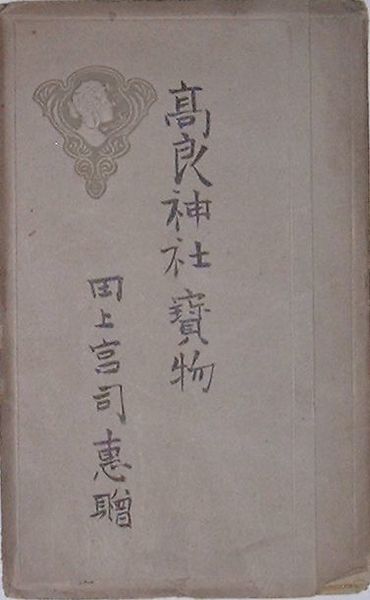 高良神社寳物
田上宮司恵贈